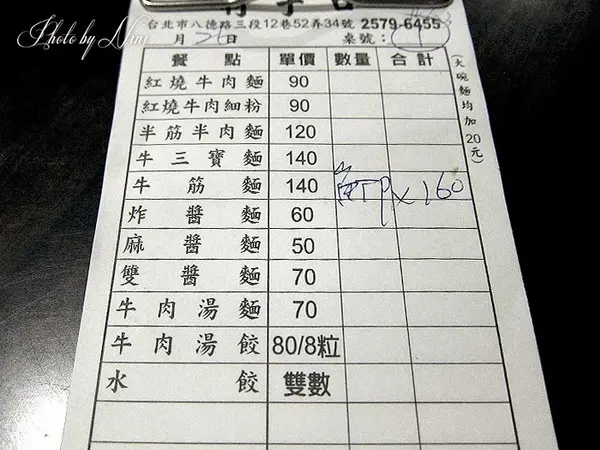 Photo by Nini
台北市八德路三段12巷52弄34號 2579-6455
月 26 日 桌號：
餐點 單價 數量 合計
紅燒牛肉麵 90
紅燒牛肉細粉 90
半筋半肉麵 120
牛三寶麵 140
牛筋麵 140
160
炸醬麵 60
麻醬麵 50
雙醬麵 70
牛肉湯麵 70
牛肉湯餃 80/8粒
水餃 雙數
（大碗麵均加20元）